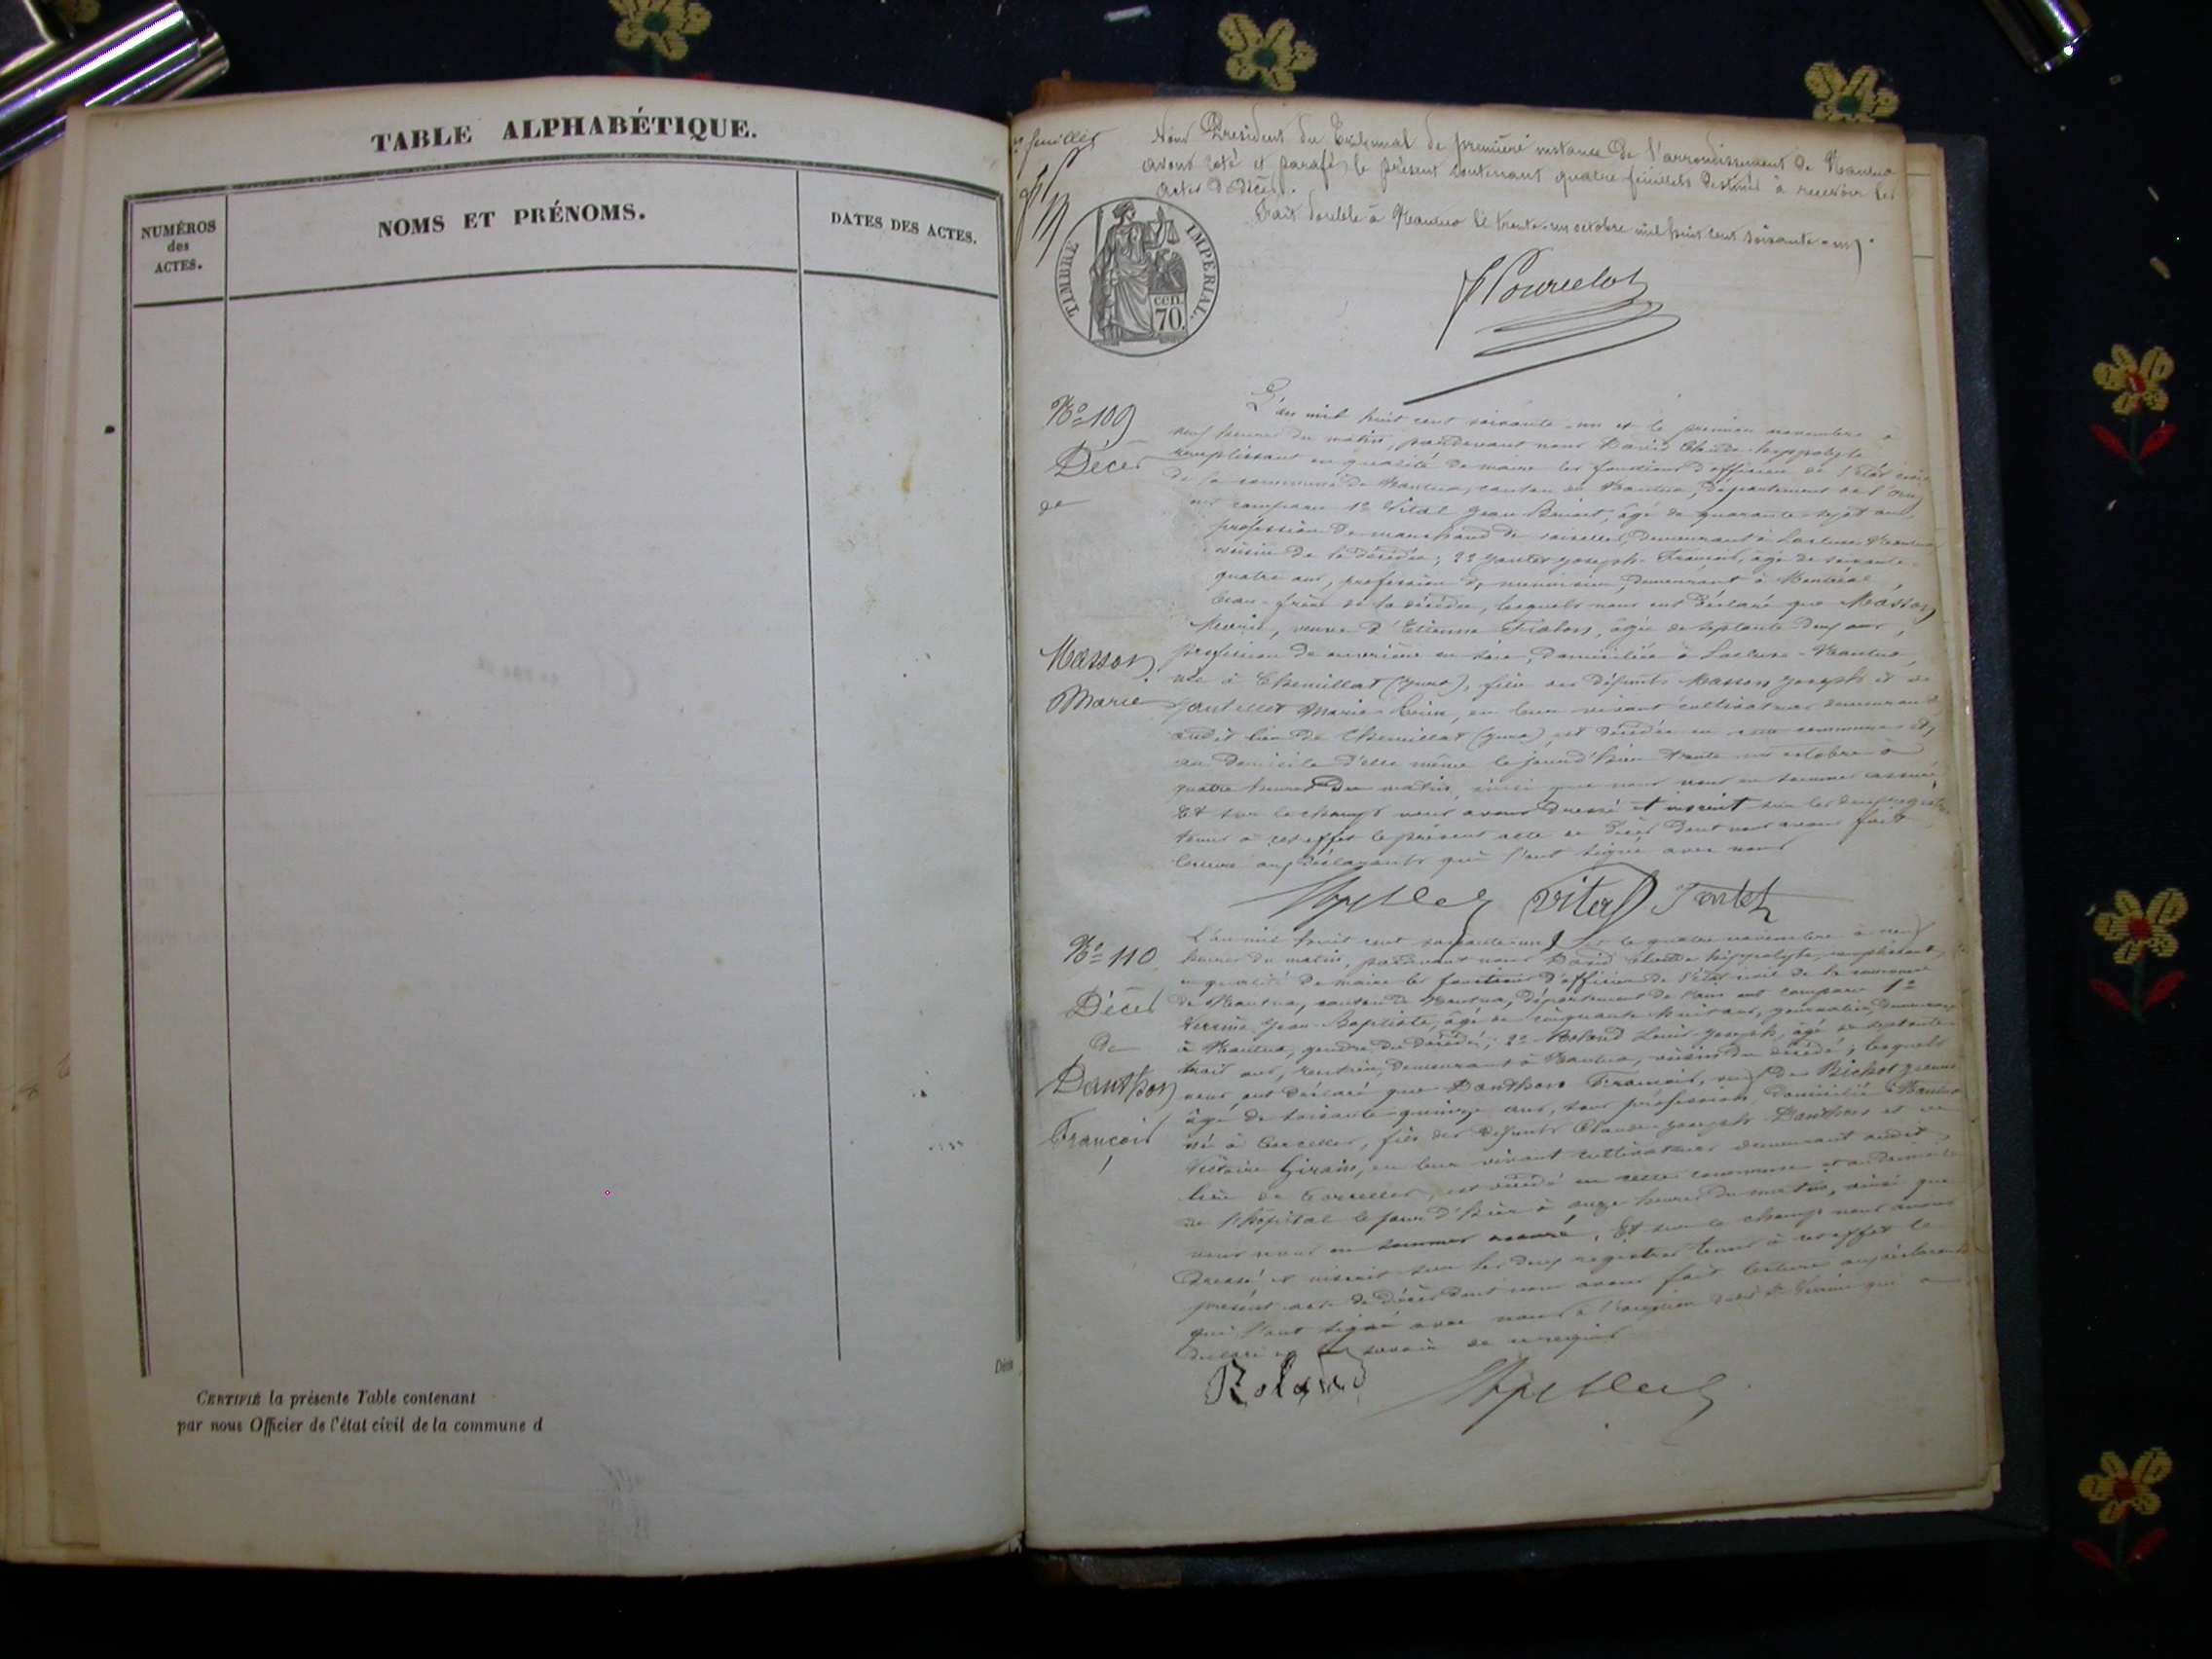 TABLE ALPHABÉTIQUE.
NUMÉROS
des
ACTES.
NOMS ET PRÉNOMS.
DATES DES ACTES.
CERTIFIÉ la présente Table contenant
par nous Officier de l'état civil de la commune d
feuillet
Nous Président du Tribunal de première instance de l'arrondissement de Nantua
avons coté et parafé le présent contenant quatre feuillets destinés à recevoir les
actes de décès.
Fait double à Nantua le trente-un octobre mil huit cent soixante-un.
TIMBRE IMPÉRIAL.
cen.
70.
No 109
Décès
de
Masson
Marie
L'an mil huit cent soixante-un et le premier novembre à
neuf heures du matin, pardevant nous David Claude-hyppolyte
remplissant en qualité de maire les fonctions d'officier de l'état civil
de la commune de Nantua, canton de Nantua, département de l'Ain
ont comparu 1o Vital Jean Benoit, âgé de quarante-sept ans,
profession de marchand de vaisselle, demeurant à Lacluse-Nantua
voisin de la décédée; 2o Joseph-François, âgé de soixante-
quatre ans, profession de menuisier, demeurant à Montréal,
beau-frère de la décédée, lesquels nous ont déclaré que Masson
Marie, veuve d'Etienne, âgée de septante deux ans,
profession de ouvrière en soie, domiciliée à Lacluse-Nantua,
née à (Jura), fille des défunts Masson Joseph et de
Marie, en leur vivant cultivateurs demeurant
audit lieu de (Jura), est décédée en cette commune et
au domicile d'elle même le jour d'hier trente un octobre à
quatre heures du matin, ainsi que nous nous en sommes assuré,
Et sur le champ nous avons dressé et inscrit sur les deux registres
tenus à cet effet le présent acte de décès dont nous avons fait
lecture aux déclarants qui l'ont signé avec nous
Vital
No 110
Décès
de
Danthon
François
L'an mil huit cent soixante-un et le quatre novembre à neuf
heures du matin, pardevant nous David Claude hippolyte, remplissant
en qualité de maire les fonctions d'officier de l'état civil de la commune
de Nantua, canton de Nantua, département de l'Ain ont comparu 1o
Jean-Baptiste, âgé de cinquante-huit ans, journalier, demeurant
à Nantua, gendre du décédé; 2o Roland Louis-Joseph, âgé de septante
trois ans, rentier, demeurant à Nantua, voisin du décédé; lesquels
nous ont déclaré que Danthon François, veuf de
âgé de soixante-quinze ans, sans profession, domicilié à Nantua
né à, fils des défunts Claude-Joseph Danthon et de
Girain, en leur vivant cultivateurs demeurant audit
lieu de, est décédé en cette commune et au domicile
de l'hôpital le jour d'hier à onze heures du matin, ainsi que
nous nous en sommes assuré, Et sur le champ nous avons
dressé et inscrit sur les deux registres tenus à cet effet le
présent acte de décès dont nous avons fait lecture aux déclarants
qui l'ont signé avec nous à l'exception dudit qui a
déclaré ne savoir de ce requis
Roland